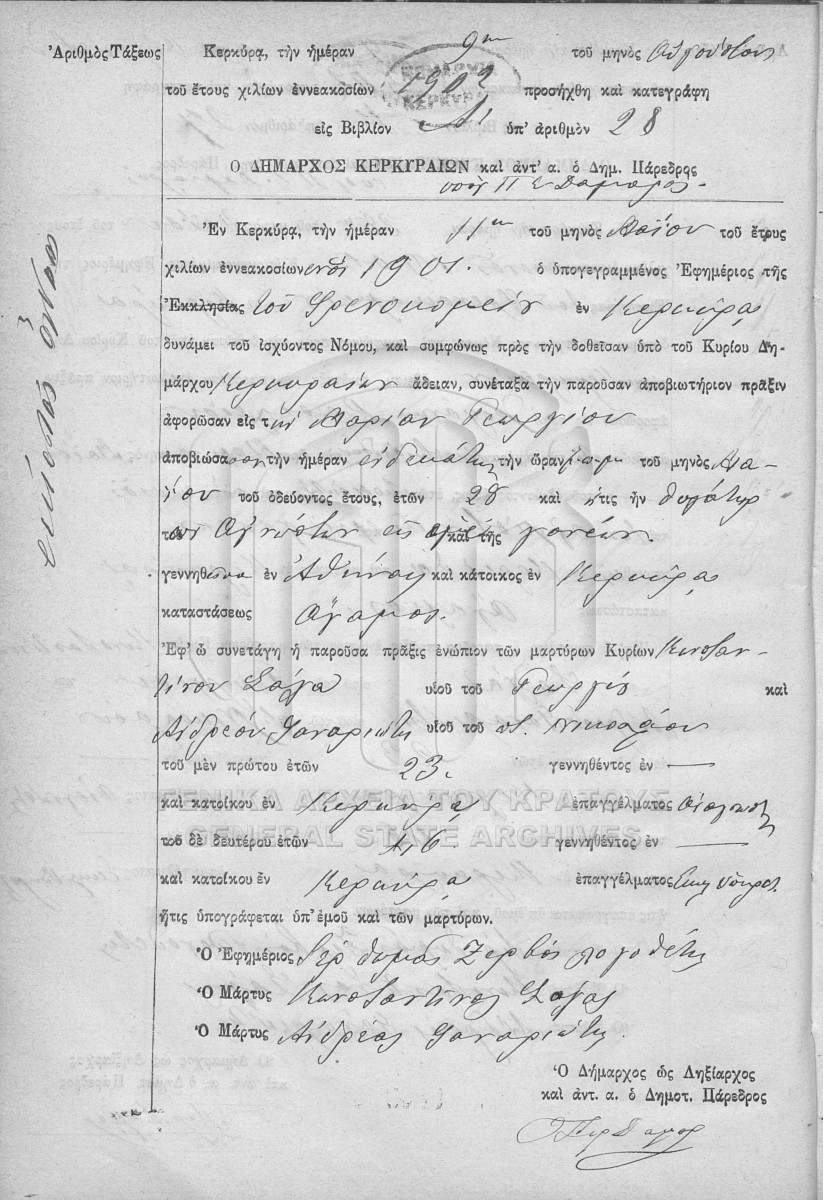 Ἀριθμὸς Τάξεως
ἑκατὸς ὀκτώ
Κερκύρᾳ, τὴν ἡμέραν 9ην τοῦ μηνὸς Αὐγούστου
τοῦ ἔτους χιλίων ἐννεακοσίων 1902 προσήχθη καὶ κατεγράφη
εἰς Βιβλίον Α΄ ὑπ' ἀριθμὸν 28
Ο ΔΗΜΑΡΧΟΣ ΚΕΡΚΥΡΑΙΩΝ καὶ ἀντ' α. ὁ Δημ. Πάρεδρος
Ἐν Κερκύρᾳ, τὴν ἡμέραν 11ην τοῦ μηνὸς Μαΐου τοῦ ἔτους
χιλίων ἐννεακοσίων ἑνός 1901. ὁ ὑπογεγραμμένος Ἐφημέριος τῆς
Ἐκκλησίας τοῦ Φρενοκομείου ἐν Κερκύρᾳ
δυνάμει τοῦ ἰσχύοντος Νόμου, καὶ συμφώνως πρὸς τὴν δοθεῖσαν ὑπὸ τοῦ Κυρίου Δη-
μάρχου Κερκυραίων ἄδειαν, συνέταξα τὴν παροῦσαν ἀποβιωτήριον πρᾶξιν
ἀφορῶσαν εἰς τὴν Μαρίαν Γεωργίου
ἀποβιώσασαν τὴν ἡμέραν ἑνδεκάτην τὴν ὥραν τοῦ μηνὸς Μα-
ΐου τοῦ ὁδεύοντος ἔτους, ἐτῶν 28 καὶ ἥτις ἦν θυγάτηρ
τοῦ ἀγνώστων καὶ τῆς γονέων.
γεννηθεῖσα ἐν Ἀθήναις καὶ κάτοικος ἐν Κερκύρᾳ
καταστάσεως ἄγαμος.
Ἐφ' ᾧ συνετάγη ἡ παροῦσα πρᾶξις ἐνώπιον τῶν μαρτύρων Κυρίων Κωνσταν-
τῖνον υἱοῦ τοῦ Γεωργίου καὶ
Ἀνδρέαν Φαναριώτη υἱοῦ τοῦ Νικολάου
τοῦ μὲν πρώτου ἐτῶν 23. γεννηθέντος ἐν —
καὶ κατοίκου ἐν Κερκύρᾳ ἐπαγγέλματος
τοῦ δὲ δευτέρου ἐτῶν 46 γεννηθέντος ἐν —
καὶ κατοίκου ἐν Κερκύρᾳ ἐπαγγέλματος Ἐκκλ. ὑπηρέτ.
ἥτις ὑπογράφεται ὑπ' ἐμοῦ καὶ τῶν μαρτύρων.
Ὁ Ἐφημέριος Ἱερ Θωμᾶς Ζερβὸς Λογοθέτης
Ὁ Μάρτυς Κωνσταντῖνος
Ὁ Μάρτυς Ἀνδρέας Φαναριώτης
Ὁ Δήμαρχος ὡς Ληξίαρχος
καὶ ἀντ. α. ὁ Δημοτ. Πάρεδρος
ΓΕΝΙΚΑ ΑΡΧΕΙΑ ΤΟΥ ΚΡΑΤΟΥΣ
GENERAL STATE ARCHIVES